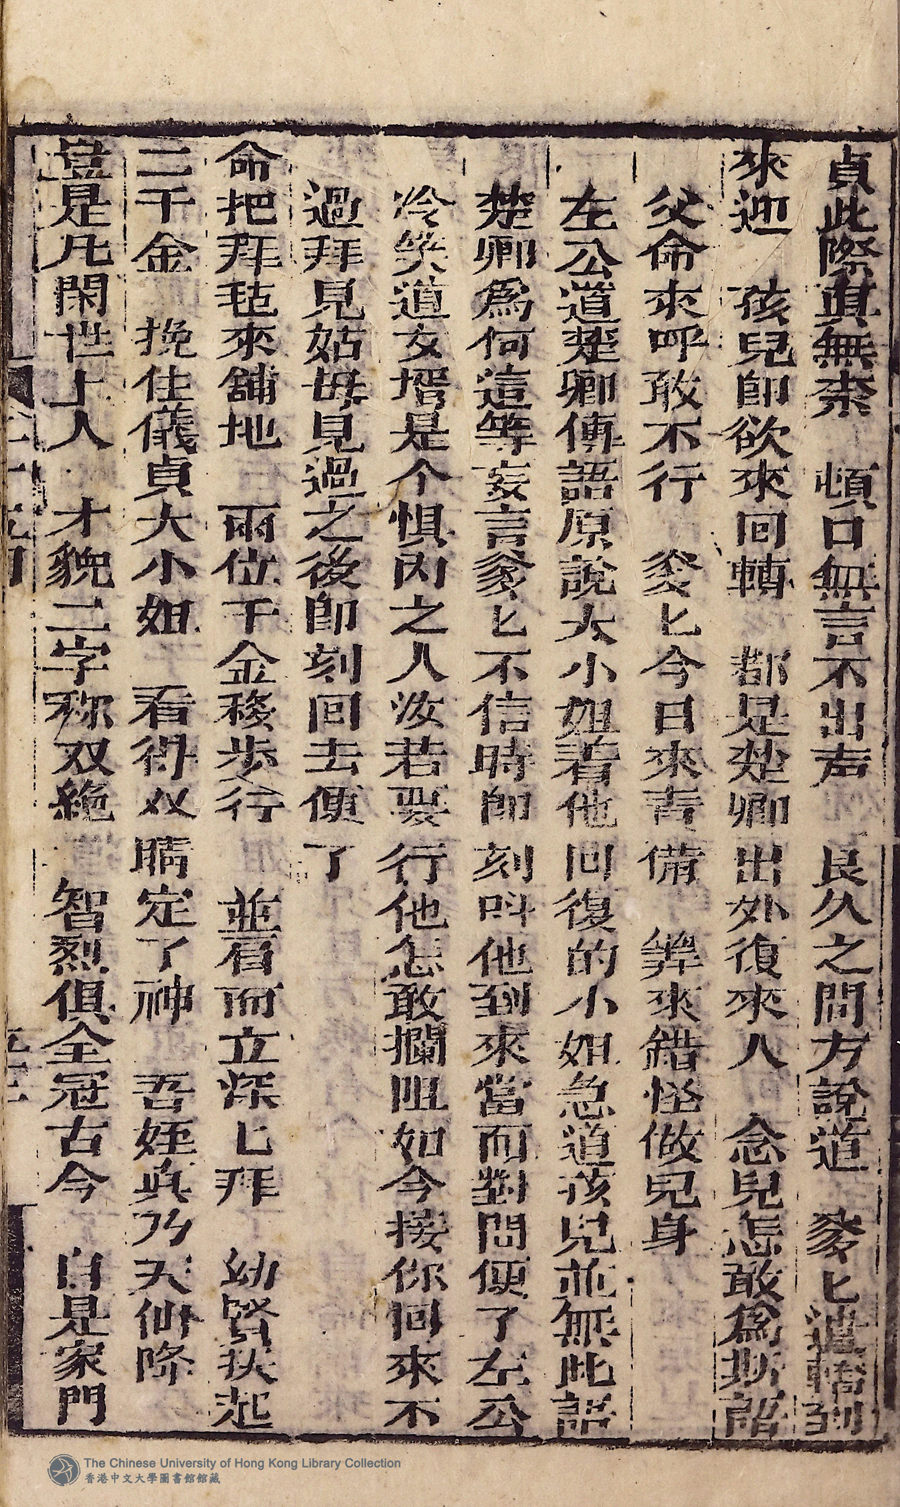 貞此際眞無柰　頓口無言不出声　良久之間方說道　爹匕遣轎到
來迎　孩兒卽欲來回轉　都是楚卿出外復來人　念兒怎敢爲斯語
父命來呼敢不行　爹匕今日來責備　筭來錯怪做兒身
左公道楚卿傳語原說大小姐着他回復的小姐急道孩兒並無此語
楚卿爲何這等妄言爹匕不信時卽刻呌他到來當面對問便了左公
冷笑道女壻是个惧內之人汝若要行他怎敢攔阻如今接你回來不
過拜見姑母見過之後卽刻回去便了
命把拜毡來舖地　兩位千金移步行　並肩而立深匕拜　幼賢扶起
二千金　挽住儀貞大小姐　看得双睛定了神　吾姪眞乃天仙降
豈是凡閑世上人　才貌二字称双絶　智烈俱全冠古今　自是家門
The Chinese University of Hong Kong Library Collection
香港中文大學圖書館館藏